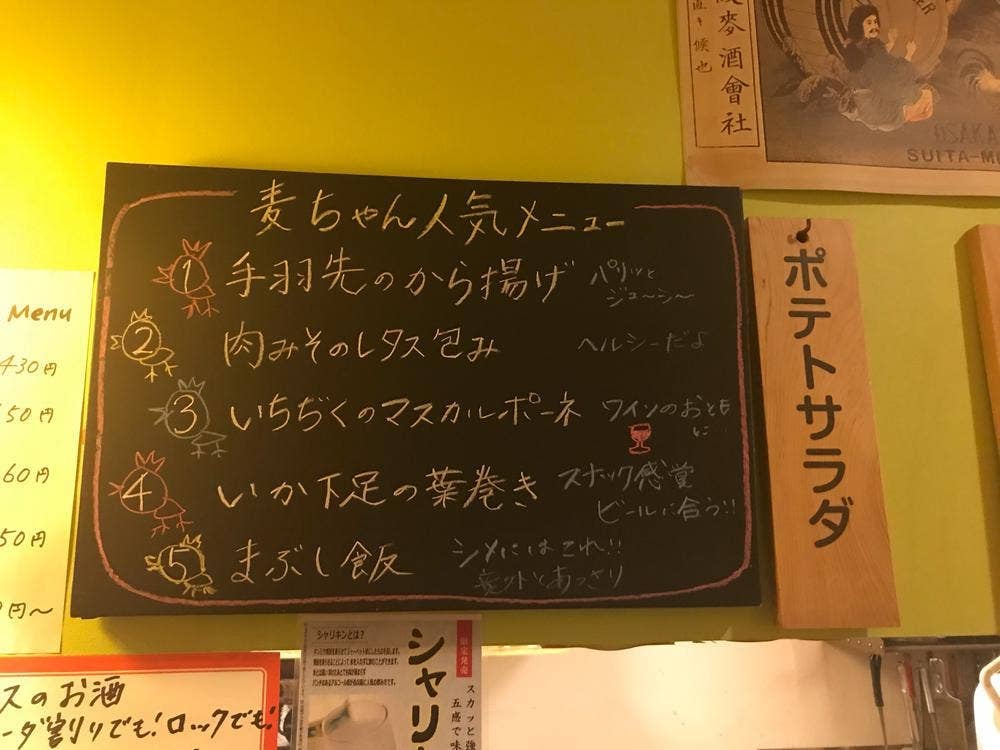 麦ちゃん人気メニュー
1 手羽先のから揚げ パリッと
ジューシ〜
2 肉みそのレタス包み ヘルシーだよ
3 いちぢくのマスカルポーネ ワインのおとも
に…
4 いか下足の葉巻き スナック感覚
ビールに合う!!
5 まぶし飯 シメにはこれ!!
とあっさり
ポテトサラダ
麥酒會社
直キ候也
OSAKA
SUITA-M
Menu
430円
50円
60円
50円
円〜
スのお酒
ダ割りでも!ロックでも!
シャリキンとは?
シャリ
限定発売
スカッと強
五感で味